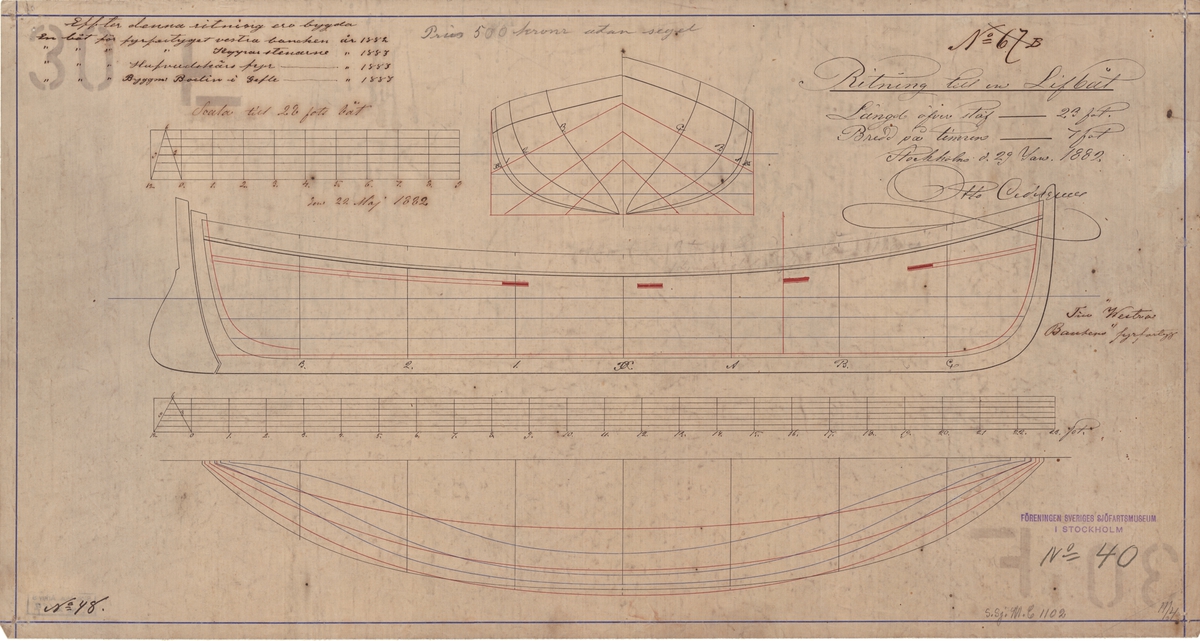 Effter denna ritning ero bygda
En båt för fyrfartyget vestra banken år 1882
" " " " Kopparstenarne " 1883
" " " Hufvudskärs fyr " 1883
" " " Byggm Bodin i Gefle " 1887
Pris 500 kronor utan segel
No 67 B
Ritning till en Lifbåt
Längd öfver staf 23 fot.
Bredd på timren 7 fot
Stockholm d. 29 Jan. 1882.
Otto
Scala till 23 fots båt
12. 0. 1. 2. 3. 4. 5. 6. 7. 8. 9.
den 22 Maj 1882
Westra
Bankens" fyrfartyg
3. 2. 1. A B. C.
12. 0. 1. 2. 3. 4. 5. 6. 7. 8. 9. 10. 11. 12. 13. 14. 15. 16. 17. 18. 19. 20. 21. 22. 23. fot.
FÖRENINGEN SVERIGES SJÖFARTSMUSEUM
I STOCKHOLM
No 40
No 48.
S. Sj. M. E 1102
30
30 F